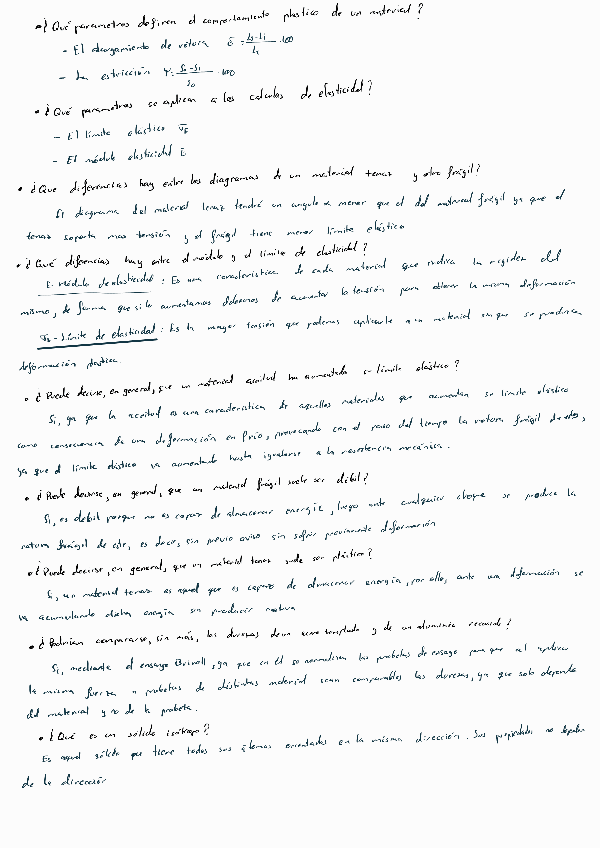 • ¿Qué parametros definen el comportamiento plastico de un material?
- El alargamiento de rotura δ = Lf-Li / Li · 100
- La estricción Ψ = So-Sf / So · 100
• ¿Qué parametros se aplican a los calculos de elasticidad?
- El límite elastico σE
- El módulo elasticidad E
• ¿Que diferencias hay entre los diagramas de un material tenaz y otro frágil?
El diagrama del material tenaz tendrá un angulo menor que el del material fragil ya que el
tenaz soporta mas tensión y el frágil tiene menor limite elástico
• ¿Qué diferencias hay entre el módulo y el limite de elasticidad?
E- Módulo de elasticidad: Es una caracteristica de cada material que indica la rigidez del
mismo, de forma que si lo aumentamos debemos de aumentar la tensión para obtener la misma deformación
σE- Límite de elasticidad: Es la mayor tensión que podemos aplicarle a un material sin que se produzca
deformación plastica.
• ¿Puede decirse, en general, que un material acritud ha aumentado su límite elástico?
Si, ya que la acritud es una caracteristica de aquellos materiales que aumentan su limite elástico
como consecuencia de una deformación en frio, provocando con el paso del tiempo la rotura frágil de este,
ya que el limite elástico va aumentando hasta igualarse a la resistencia mecánica.
• ¿Puede decirse, en general, que un material frágil suele ser débil?
Si, es debil porque no es capaz de almacenar energia, luego ante cualquier choque se produce la
rotura frágil de este, es decir, sin previo aviso sin sufrir previamente deformación
• ¿Puede decirse, en general, que un material tenaz suele ser plástico?
Si, un material tenaz es aquel que es capaz de almacenar energía, por ello, ante una deformación se
va acumulando dicha energia sin producir rotura
• ¿Podrian compararse, sin más, las durezas de un acero templado y de un aluminio recocido?
Si, mediante el ensayo Brinell, ya que en él se normalizan las probetas de ensayo para que al aplicar
la misma fuerza a probetas de distintos material sean comparables las durezas, ya que solo depende
del material y no de la probeta.
• ¿Qué es un sólido isótropo?
Es aquel sólido que tiene todos sus átomos orientados en la misma dirección. Sus propiedades no dependen
de la dirección